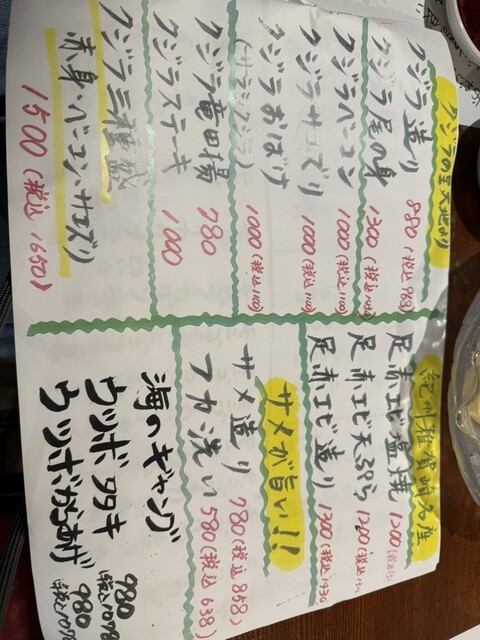 クジラの里太地より
クジラ造り 880 (税込968)
クジラ尾の身 1300 (税込
クジラベーコン 1000 (税込1100)
クジラサエズリ 1000 (税込1100)
クジラおばけ 1000 (税込1100)
クジラ竜田揚 780
クジラステーキ 1000
クジラ三種盛
赤身・ベーコン・サエズリ
1500 (税込1650)
紀州雑賀崎名産
足赤エビ塩焼 1200
足赤エビ天ぷら 1200 (税込
足赤エビ造り 1300 (税込1430)
サメが旨い!!
サメ造り 780 (税込858)
フカ洗い 580 (税込638)
海のギャング
ウツボタタキ 980 (税込1078)
ウツボからあげ 980 (税込1078)